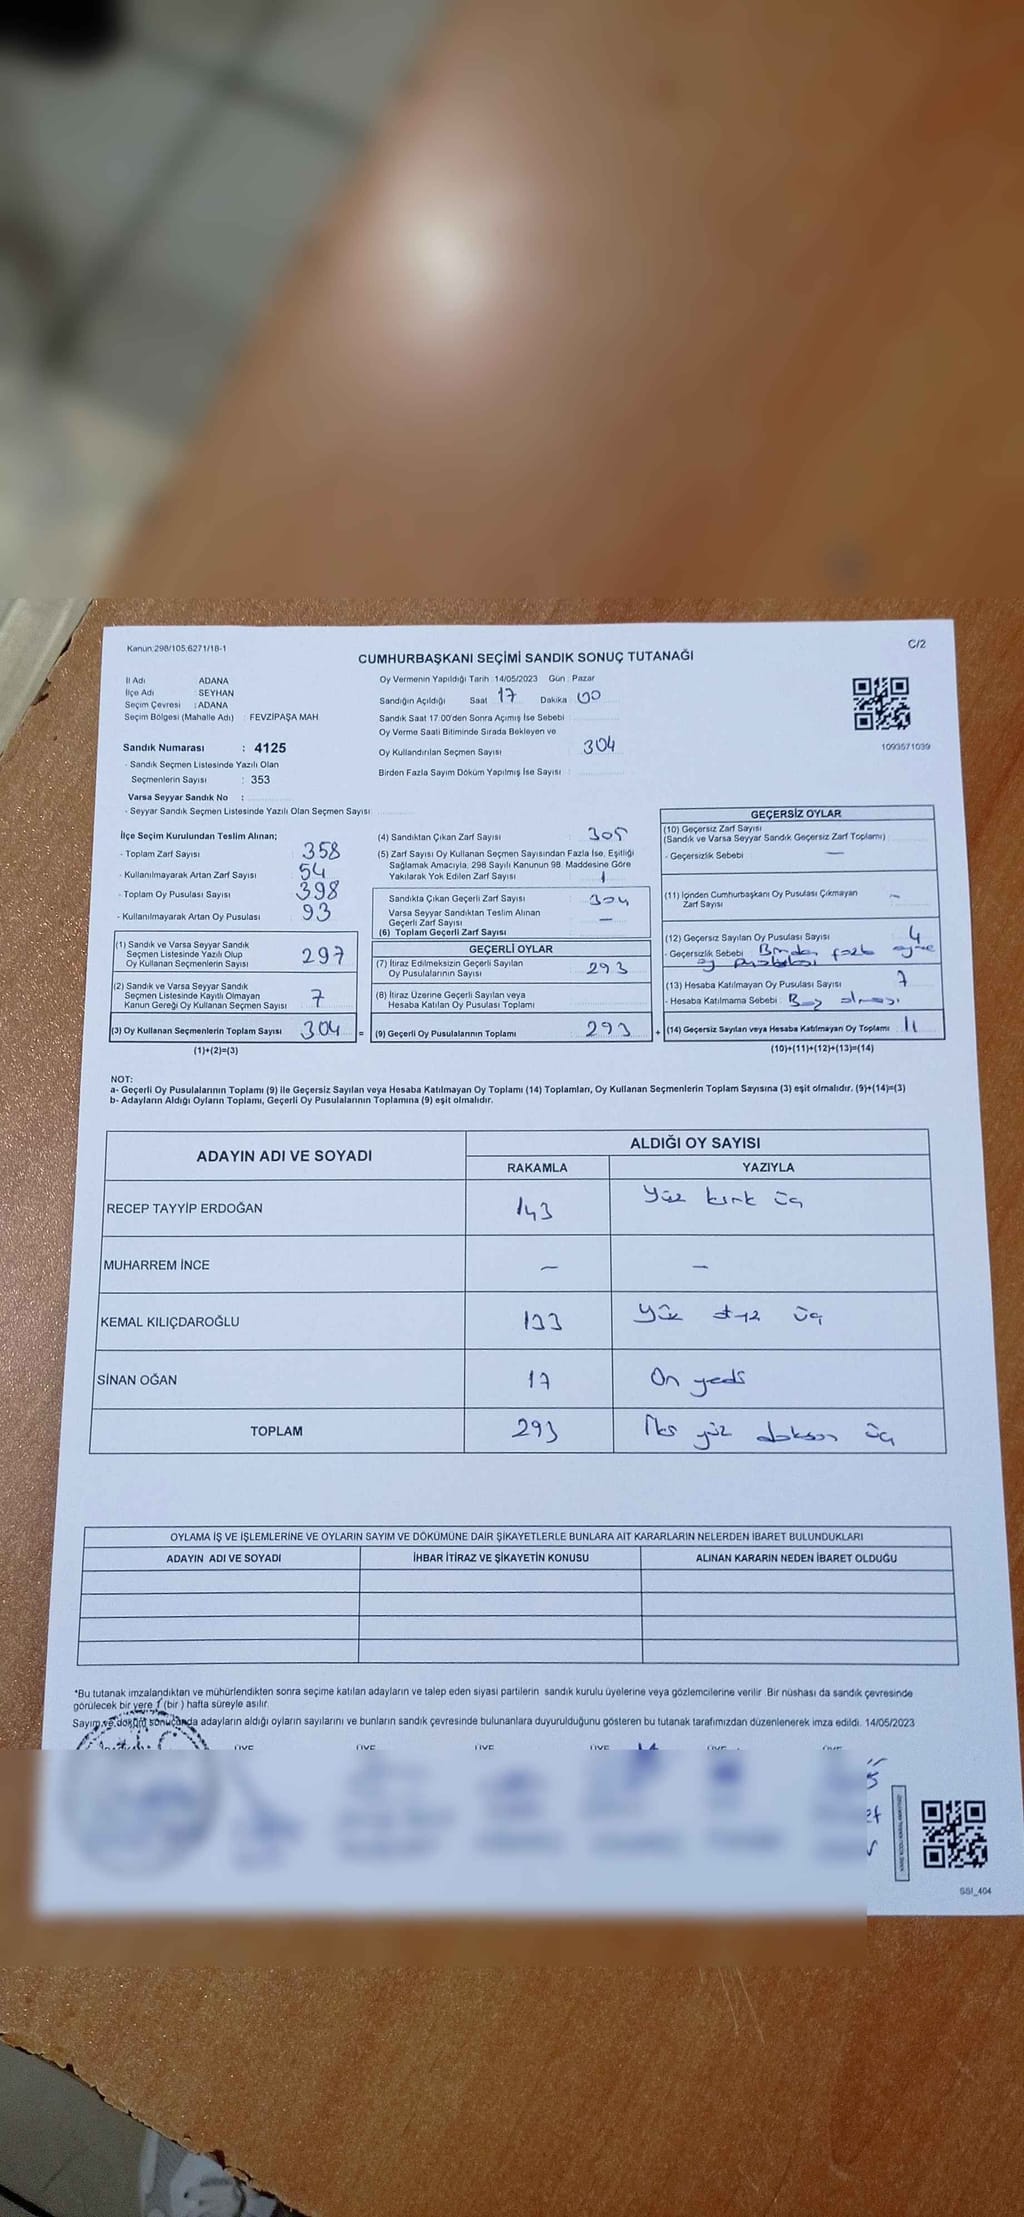 Kanun:298/105,6271/18-1
C/2
CUMHURBAŞKANI SEÇİMİ SANDIK SONUÇ TUTANAĞI
İl Adı ADANA
İlçe Adı SEYHAN
Seçim Çevresi : ADANA
Seçim Bölgesi (Mahalle Adı) : FEVZİPAŞA MAH
Sandık Numarası : 4125
- Sandık Seçmen Listesinde Yazılı Olan
Seçmenlerin Sayısı : 353
Varsa Seyyar Sandık No :
- Seyyar Sandık Seçmen Listesinde Yazılı Olan Seçmen Sayısı
Oy Vermenin Yapıldığı Tarih : 14/05/2023 Gün : Pazar
Sandığın Açıldığı Saat 17 Dakika 00
Sandık Saat 17.00'den Sonra Açımış İse Sebebi
Oy Verme Saati Bitiminde Sırada Bekleyen ve
Oy Kullandırılan Seçmen Sayısı : 304
Birden Fazla Sayım Döküm Yapılmış İse Sayısı :
1093571039
İlçe Seçim Kurulundan Teslim Alınan;
- Toplam Zarf Sayısı : 358
- Kullanılmayarak Artan Zarf Sayısı : 54
- Toplam Oy Pusulası Sayısı : 398
- Kullanılmayarak Artan Oy Pusulası : 93
(1) Sandık ve Varsa Seyyar Sandık
Seçmen Listesinde Yazılı Olup
Oy Kullanan Seçmenlerin Sayısı 297
(2) Sandık ve Varsa Seyyar Sandık
Seçmen Listesinde Kayıtlı Olmayan
Kanun Gereği Oy Kullanan Seçmen Sayısı 7
(3) Oy Kullanan Seçmenlerin Toplam Sayısı 304 =
(1)+(2)=(3)
(4) Sandıktan Çıkan Zarf Sayısı : 305
(5) Zarf Sayısı Oy Kullanan Seçmen Sayısından Fazla İse, Eşitliği
Sağlamak Amacıyla, 298 Sayılı Kanunun 98. Maddesine Göre
Yakılarak Yok Edilen Zarf Sayısı : 1
Sandıkta Çıkan Geçerli Zarf Sayısı : 304
Varsa Seyyar Sandıktan Teslim Alınan
Geçerli Zarf Sayısı : –
(6) Toplam Geçerli Zarf Sayısı
GEÇERLİ OYLAR
(7) İtiraz Edilmeksizin Geçerli Sayılan
Oy Pusulalarının Sayısı 293
(8) İtiraz Üzerine Geçerli Sayılan veya
Hesaba Katılan Oy Pusulası Toplamı
(9) Geçerli Oy Pusulalarının Toplamı 293 +
GEÇERSİZ OYLAR
(10) Geçersiz Zarf Sayısı
(Sandık ve Varsa Seyyar Sandık Geçersiz Zarf Toplamı)
- Geçersizlik Sebebi : –
(11) İçinden Cumhurbaşkanı Oy Pusulası Çıkmayan
Zarf Sayısı –
(12) Geçersiz Sayılan Oy Pusulası Sayısı 4
- Geçersizlik Sebebi : Birden fazla
oy pusulası
(13) Hesaba Katılmayan Oy Pusulası Sayısı 7
- Hesaba Katılmama Sebebi : Boş olması
(14) Geçersiz Sayılan veya Hesaba Katılmayan Oy Toplamı 11
(10)+(11)+(12)+(13)=(14)
NOT:
a- Geçerli Oy Pusulalarının Toplamı (9) ile Geçersiz Sayılan veya Hesaba Katılmayan Oy Toplamı (14) Toplamları, Oy Kullanan Seçmenlerin Toplam Sayısına (3) eşit olmalıdır. (9)+(14)=(3)
b- Adayların Aldığı Oyların Toplamı, Geçerli Oy Pusulalarının Toplamına (9) eşit olmalıdır.
ADAYIN ADI VE SOYADI
ALDIĞI OY SAYISI
RAKAMLA YAZIYLA
RECEP TAYYİP ERDOĞAN 143 Yüz kırk üç
MUHARREM İNCE – –
KEMAL KILIÇDAROĞLU 133 Yüz otuz üç
SİNAN OĞAN 17 On yedi
TOPLAM 293 İki yüz doksan üç
OYLAMA İŞ VE İŞLEMLERİNE VE OYLARIN SAYIM VE DÖKÜMÜNE DAİR ŞİKAYETLERLE BUNLARA AİT KARARLARIN NELERDEN İBARET BULUNDUKLARI
ADAYIN ADI VE SOYADI İHBAR İTİRAZ VE ŞİKAYETİN KONUSU ALINAN KARARIN NEDEN İBARET OLDUĞU
*Bu tutanak imzalandıktan ve mühürlendikten sonra seçime katılan adayların ve talep eden siyasi partilerin sandık kurulu üyelerine veya gözlemcilerine verilir .Bir nüshası da sandık çevresinde
görülecek bir yere 1 (bir ) hafta süreyle asılır.
Sayım ve döküm sonucunda adayların aldığı oyların sayılarını ve bunların sandık çevresinde bulunanlara duyurulduğunu gösteren bu tutanak tarafımızdan düzenlenerek imza edildi. 14/05/2023
ÜYE ÜYE ÜYE ÜYE ÜYE ÜYE
SSI_404